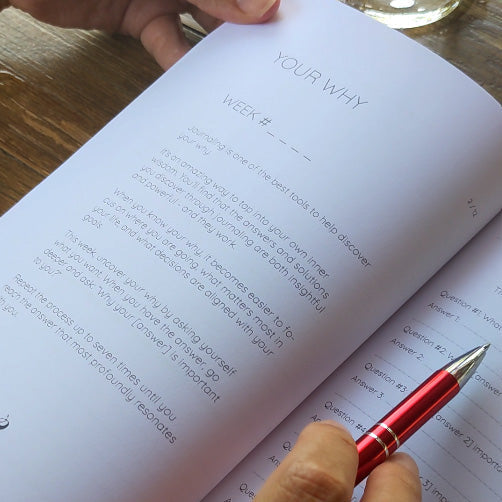 YOUR WHY
WEEK #_ _ _ _
Journaling is one of the best tools to help discover
your why.
It's an amazing way to tap into your own inner
wisdom. You'll find that the answers and solutions
you discover through journaling are both insightful
and powerful - and they work.
When you know your why, it becomes easier to fo-
cus on where you are going, what matters most in
your life, and what decisions are aligned with your
goals.
This week, uncover your why by asking yourself
what you want. When you have the answer, go
deeper, and ask: Why your [answer] is important
to you?
Repeat the process up to seven times until you
reach the answer that most profoundly resonates
with you.
Question #1:
Answer 1:
Question #2: W
Answer 2:
Question #3:
answer 2] importa
Answer 3:
Question #4
3] impo